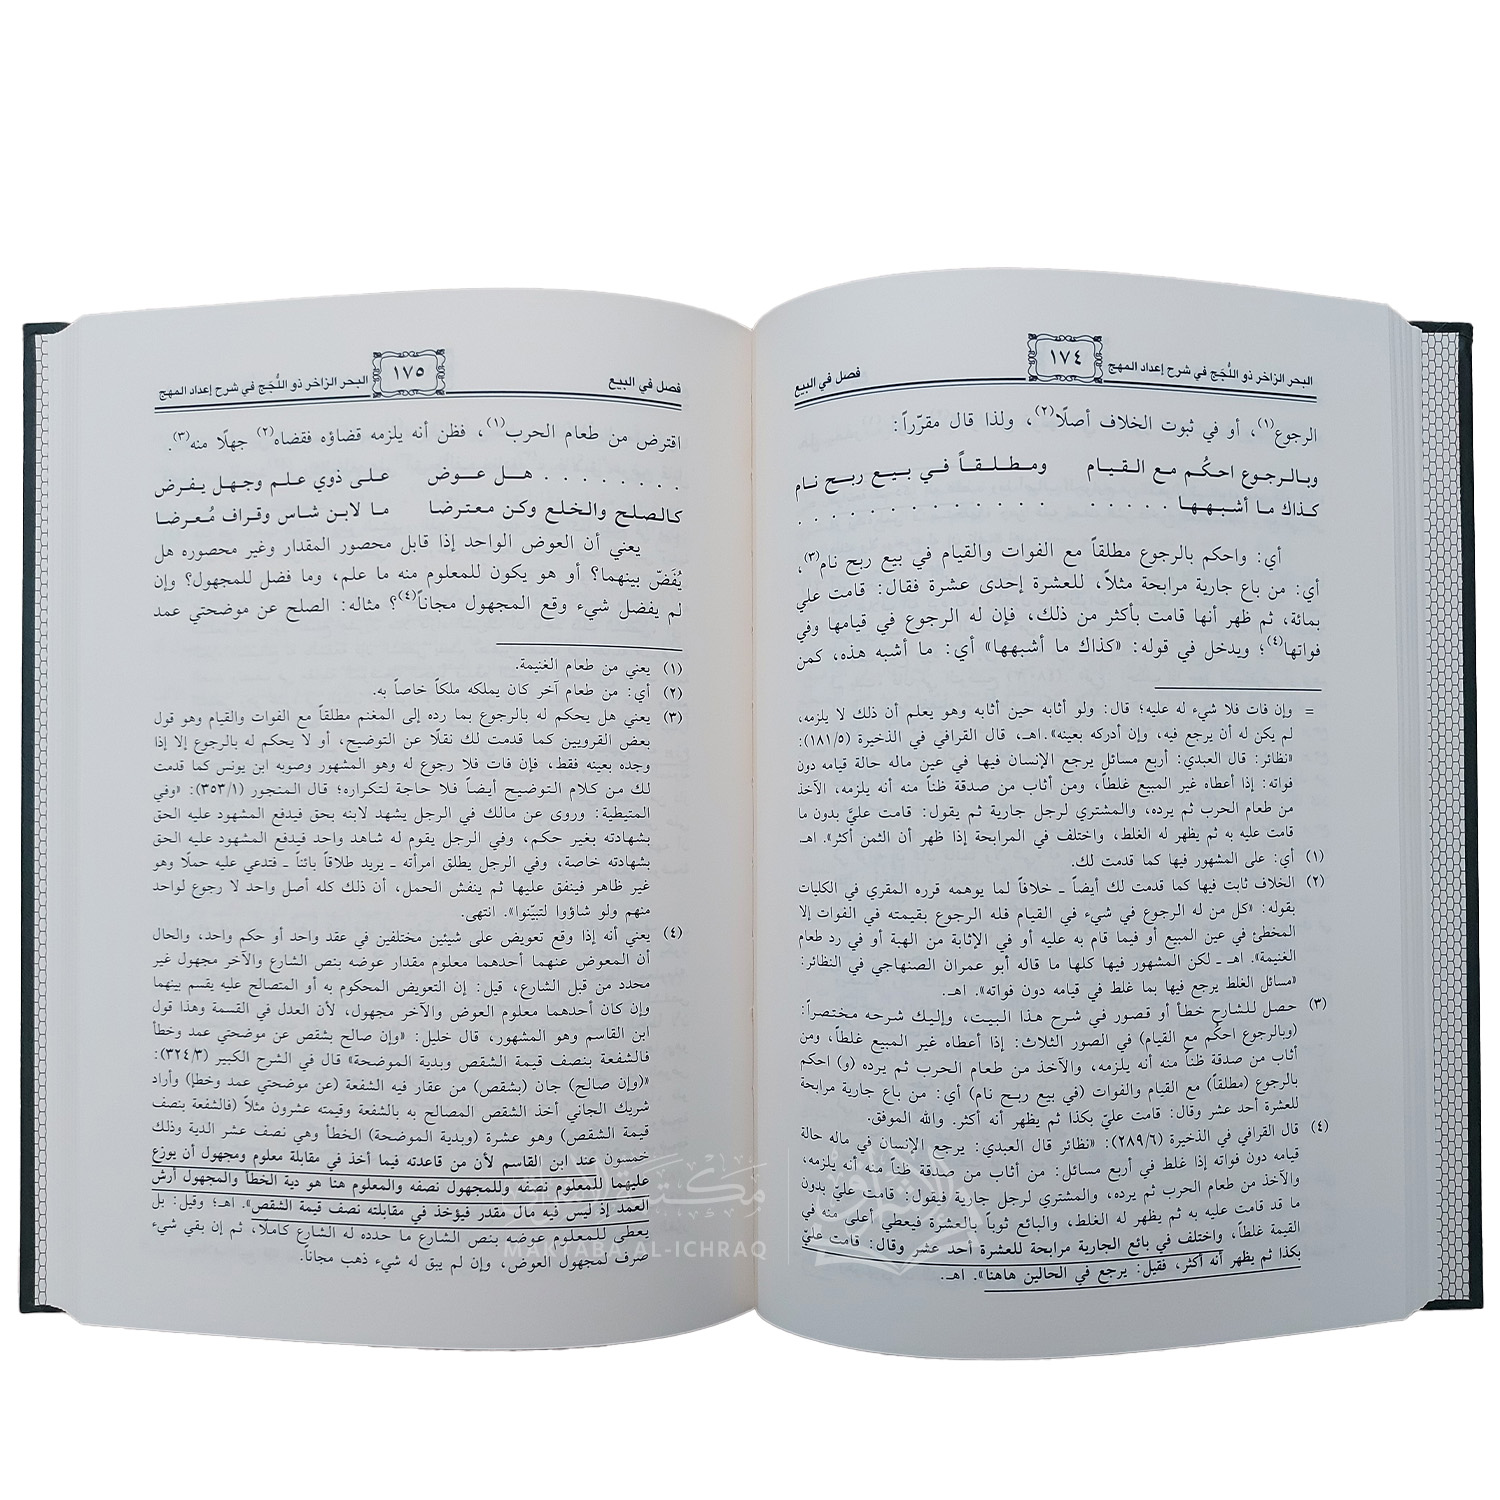 البحر الزاخر ذو اللُّجَج في شرح إعداد المهج ١٧٤ فصل في البيع
الرجوع(١)، أو في ثبوت الخلاف أصلًا(٢)، ولذا قال مقرّراً:
وبالرجوع احكُم مع القيام ومطلقاً في بيع ربح نام
كذاك ما أشبهها . . . . . . . . . . . . . . . .
أي: واحكم بالرجوع مطلقاً مع الفوات والقيام في بيع ربح نام(٣)،
أي: من باع جارية مرابحة مثلاً، للعشرة إحدى عشرة فقال: قامت علي
بمائة، ثم ظهر أنها قامت بأكثر من ذلك، فإن له الرجوع في قيامها وفي
فواتها(٤)؛ ويدخل في قوله: «كذاك ما أشبهها» أي: ما أشبه هذه، كمن
= وإن فات فلا شيء له عليه؛ قال: ولو أثابه حين أثابه وهو يعلم أن ذلك لا يلزمه،
لم يكن له أن يرجع فيه، وإن أدركه بعينه».اهـ، قال القرافي في الذخيرة (١٨١/٥):
«نظائر: قال العبدي: أربع مسائل يرجع الإنسان فيها في عين ماله حالة قيامه دون
فواته: إذا أعطاه غير المبيع غلطاً، ومن أثاب من صدقة ظناً منه أنه يلزمه، الآخذ
من طعام الحرب ثم يرده، والمشتري لرجل جارية ثم يقول: قامت عليَّ بدون ما
قامت عليه به ثم يظهر له الغلط، واختلف في المرابحة إذا ظهر أن الثمن أكثر». اهـ
(١) أي: على المشهور فيها كما قدمت لك.
(٢) الخلاف ثابت فيها كما قدمت لك أيضاً ـ خلافاً لما يوهمه قرره المقري في الكليات
بقوله: «كل من له الرجوع في شيء في القيام فله الرجوع بقيمته في الفوات إلا
المخطئ في عين المبيع أو فيما قام به عليه أو في الإثابة من الهبة أو في رد طعام
الغنيمة». اهـ ـ لكن المشهور فيها كلها ما قاله أبو عمران الصنهاجي في النظائر:
«مسائل الغلط يرجع فيها بما غلط في قيامه دون فواته». اهـ.
(٣) حصل للشارح خطأ أو قصور في شرح هذا البيت، وإليك شرحه مختصراً:
(وبالرجوع احكُم مع القيام) في الصور الثلاث: إذا أعطاه غير المبيع غلطاً، ومن
أثاب من صدقة ظناً منه أنه يلزمه، والآخذ من طعام الحرب ثم يرده (و) احكم
بالرجوع (مطلقاً) مع القيام والفوات (في بيع ربح نام) أي: من باع جارية مرابحة
للعشرة أحد عشر وقال: قامت عليّ بكذا ثم يظهر أنه أكثر. والله الموفق.
(٤) قال القرافي في الذخيرة (٢٨٩/٦): «نظائر قال العبدي: يرجع الإنسان في ماله حالة
قيامه دون فواته إذا غلط في أربع مسائل: من أثاب من صدقة ظناً منه أنه يلزمه،
والآخذ من طعام الحرب ثم يرده، والمشتري لرجل جارية فيقول: قامت عليّ بدون
ما قد قامت عليه به ثم يظهر له الغلط، والبائع ثوباً بالعشرة فيعطي أعلى منه في
القيمة غلطاً، واختلف في بائع الجارية مرابحة للعشرة أحد عشر وقال: قامت عليّ
بكذا ثم يظهر أنه أكثر، فقيل: يرجع في الحالين هاهنا». اهـ.
فصل في البيع ١٧٥ البحر الزاخر ذو اللُّجَج في شرح إعداد المهج
اقترض من طعام الحرب(١)، فظن أنه يلزمه قضاؤه فقضاه(٢) جهلًا منه(٣).
. . . . . . . . هل عوض على ذوي علم وجهل يفرض
كالصلح والخلع وكن معترضا ما لابن شاس وقراف مُعرضا
يعني أن العوض الواحد إذا قابل محصور المقدار وغير محصوره هل
يُفَضّ بينهما؟ أو هو يكون للمعلوم منه ما علم، وما فضل للمجهول؟ وإن
لم يفضل شيء وقع المجهول مجاناً(٤)؟ مثاله: الصلح عن موضحتي عمد
(١) يعني من طعام الغنيمة.
(٢) أي: من طعام آخر كان يملكه ملكاً خاصاً به.
(٣) يعني هل يحكم له بالرجوع بما رده إلى المغنم مطلقاً مع الفوات والقيام وهو قول
بعض القرويين كما قدمت لك نقلًا عن التوضيح، أو لا يحكم له بالرجوع إلا إذا
وجده بعينه فقط، فإن فات فلا رجوع له وهو المشهور وصوبه ابن يونس كما قدمت
لك من كلام التوضيح أيضاً فلا حاجة لتكراره؛ قال المنجور (٣٥٣/١): «وفي
المتيطية: وروى عن مالك في الرجل يشهد لابنه بحق فيدفع المشهود عليه الحق
بشهادته بغير حكم، وفي الرجل يقوم له شاهد واحد فيدفع المشهود عليه الحق
بشهادته خاصة، وفي الرجل يطلق امرأته ـ يريد طلاقاً بائناً ـ فتدعي عليه حملًا وهو
غير ظاهر فينفق عليها ثم ينفش الحمل، أن ذلك كله أصل واحد لا رجوع لواحد
منهم ولو شاؤوا لتبيّنوا». انتهى.
(٤) يعني أنه إذا وقع تعويض على شيئين مختلفين في عقد واحد أو حكم واحد، والحال
أن المعوض عنهما أحدهما معلوم مقدار عوضه بنص الشارع والآخر مجهول غير
محدد من قبل الشارع، قيل: إن التعويض المحكوم به أو المتصالح عليه يقسم بينهما
وإن كان أحدهما معلوم العوض والآخر مجهول، لأن العدل في القسمة وهذا قول
ابن القاسم وهو المشهور، قال خليل: «وإن صالح بشقص عن موضحتي عمد وخطأ
فالشفعة بنصف قيمة الشقص وبدية الموضحة» قال في الشرح الكبير (٣٢٤/٣):
«(وإن صالح) جان (بشقص) من عقار فيه الشفعة (عن موضحتي عمد وخطإ) وأراد
شريك الجاني أخذ الشقص المصالح به بالشفعة وقيمته عشرون مثلاً (فالشفعة بنصف
قيمة الشقص) وهو عشرة (وبدية الموضحة) الخطأ وهي نصف عشر الدية وذلك
خمسون عند ابن القاسم لأن من قاعدته فيما أخذ في مقابلة معلوم ومجهول أن يوزع
عليهما للمعلوم نصفه وللمجهول نصفه والمعلوم هنا هو دية الخطأ والمجهول أرش
العمد إذ ليس فيه مال مقدر فيؤخذ في مقابلته نصف قيمة الشقص». اهـ؛ وقيل: بل
يعطى للمعلوم عوضه بنص الشارع ما حدده له الشارع كاملًا، ثم إن بقي شيء
صرف لمجهول العوض، وإن لم يبق له شيء ذهب مجاناً.
مكتبة الإشراق
MAKTABA AL-ICHRAQ